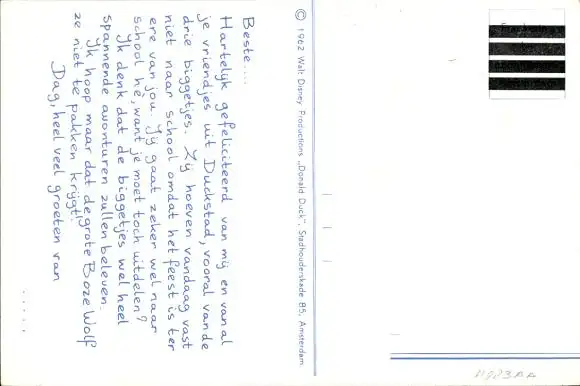 Beste....
Hartelijk gefeliciteerd van mij en van al
je vriendjes uit Duckstad, vooral van de
drie biggetjes. Zij hoeven vandaag vast
niet naar school omdat het feest is ter
ere van jou. Jij gaat zeker wel naar
school hè, want je moet toch uitdelen?
Ik denk dat de biggetjes wel heel
spannende avonturen zullen beleven.
Ik hoop maar dat de grote Boze Wolf
ze niet te pakken krijgt!
Dag, heel veel groeten van
.....
© 1962 Walt Disney Productions „Donald Duck", Stadhouderskade 85, Amsterdam